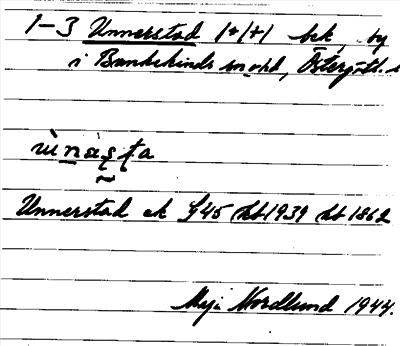 1–3 Unnerstad 1+1+1 bek, by
i Bankekinds sn o hd, Östergötl. l
ùnàs̰ṭa
Unnerstad ek G45 Hbl 1939 Kb 1862
Maja Nordlund 1944.